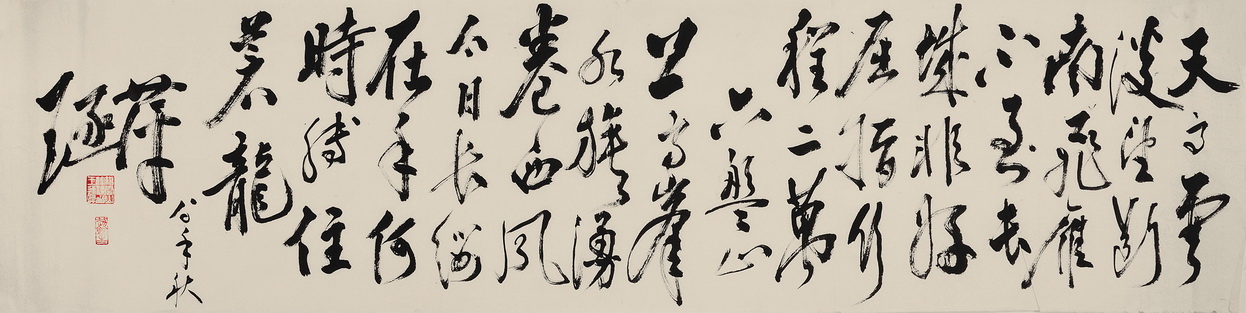 天高雲
淡望斷
南飛雁
不到長
城非好
屈指行
程二萬
六盤山
上高峯
紅旗漫
卷西風
今日長纓
在手何
時縛住
蒼龍
年秋